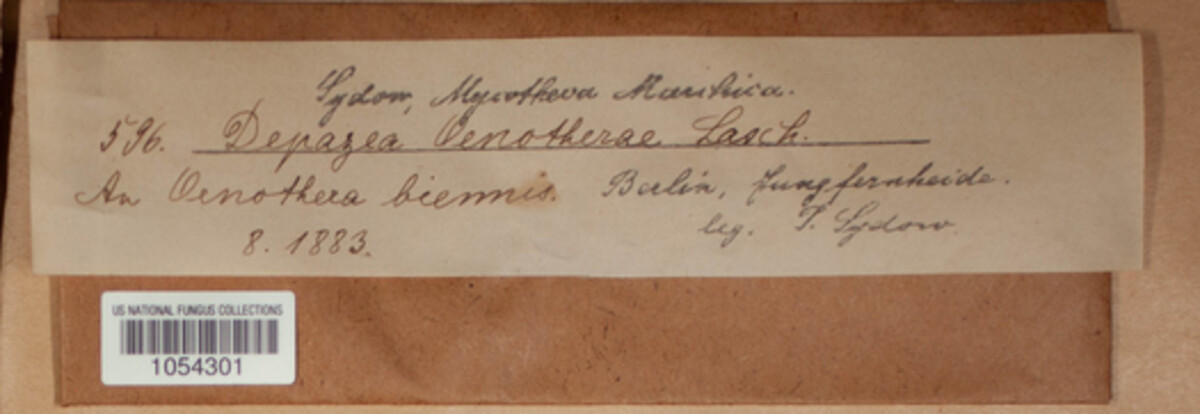 Sydow, Mycotheca Marchica.
596. Depazea Oenotherae Lasch.
An Oenothera biennis. Berlin, Jungfernheide.
8. 1883. leg. P. Sydow.
US NATIONAL FUNGUS COLLECTIONS
1054301